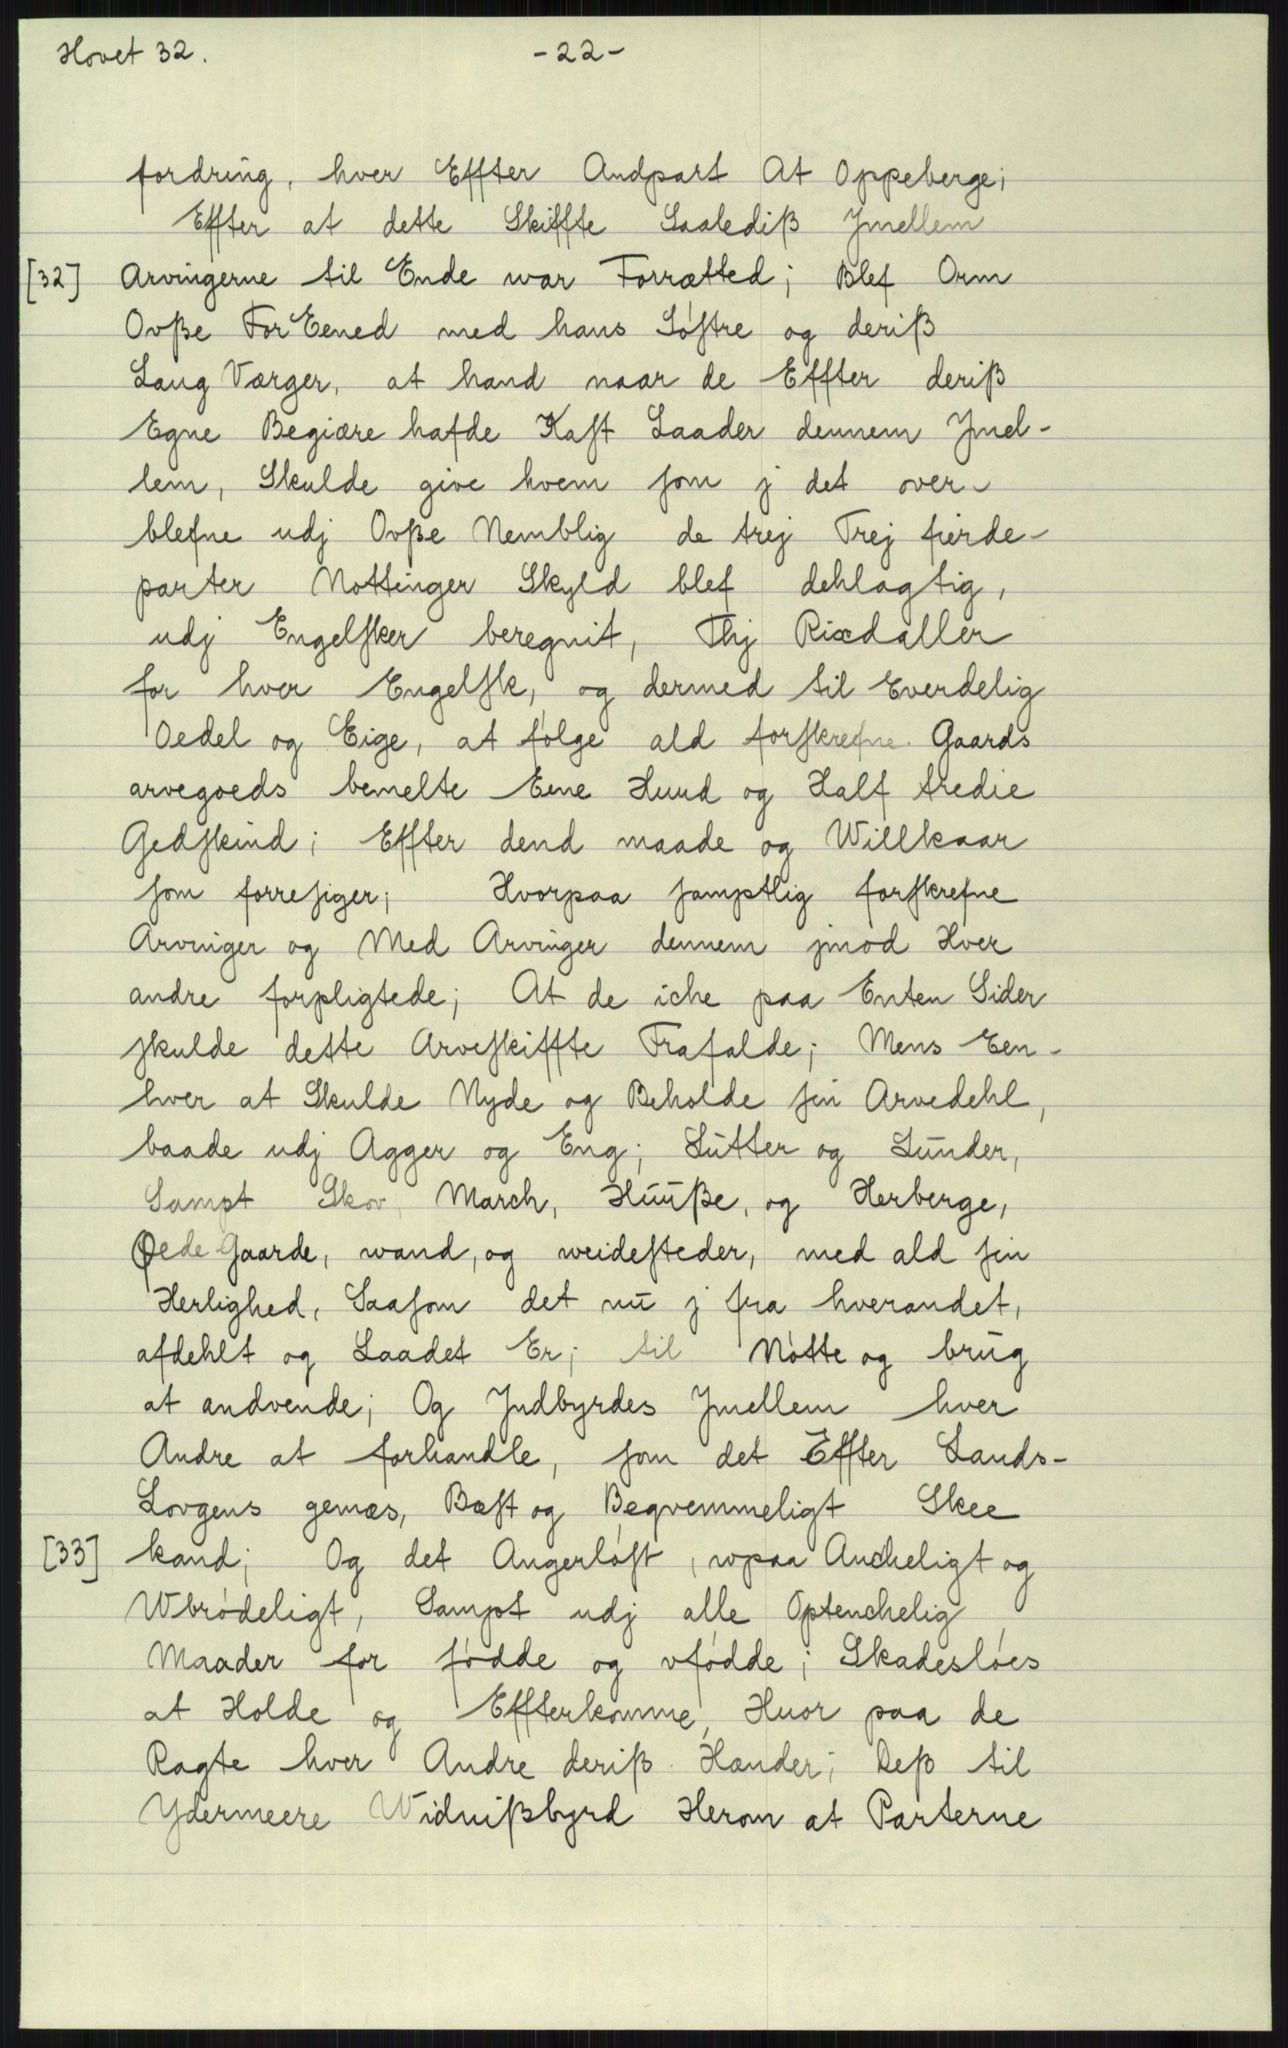 Hovet 32. -22-
fordring, hver Effter Andpart At Oppeberge;
Effter at dette Skiffte Saalediß Ymellem
[32] Arvingerne til Ende war Forrætted; Blef Orm
Ovße For Eened med hans Søftre og deriß
Laug Værger, at hand naar de Effter deriß
Egne Begiære hafde Kaft Laader dennem Ymel-
lem, Skulde give hvem som j det over-
blefne udj Ovße Nemblig de trej Trej fierde-
parter Nottinger Skyld blef dehlagtig,
udj Engelsker beregnit, Thj Rixdaller
for hver Engelsk, og dermed til Everdelig
Oedel og Eige, at følge ald forskrefne Gaards
arvegoeds bemelte Eene Huud og Half tredie
Gedskind; Effter dend maade og Willkaar
som forresiger; Hvorpaa samptlig forskrefne
Arvinger og Med Arvinger dennem jmod Hver
andre forpligtede; At de iche paa Enten Sider
skulde dette Arveskiffte Frafalde; Mens Een-
hver at Skulde Nyde og Beholde sin Arvedehl,
baade udj Agger og Eng; Lutter og Lunder,
Sampt Skov, March, Huuße, og Herberge,
Øede Gaarde, wand, og weidesteder, med ald sin
Herlighed, Saasom det nu j fra hverandet,
afdehlt og Laadet Er; til Nøtte og brug
at andvende; Og Yndbyrdes Ymellem hver
Andre at forhandle, som det Effter Lands-
Lovgens gemæs, Bæst og Beqvemmeligt Skee
[33] kand; Og det Angerløst, wpaa Ancheligt og
Wbrødeligt, Sampt udj alle Optenchelig
Maader for fødde og vfødde; Skadesløes
at Holde og Effterkomme, Huor paa de
Ragte hver Andre deriß Hænder; Deß til
Ydermeere Widnißbyrd Herom at Parterne